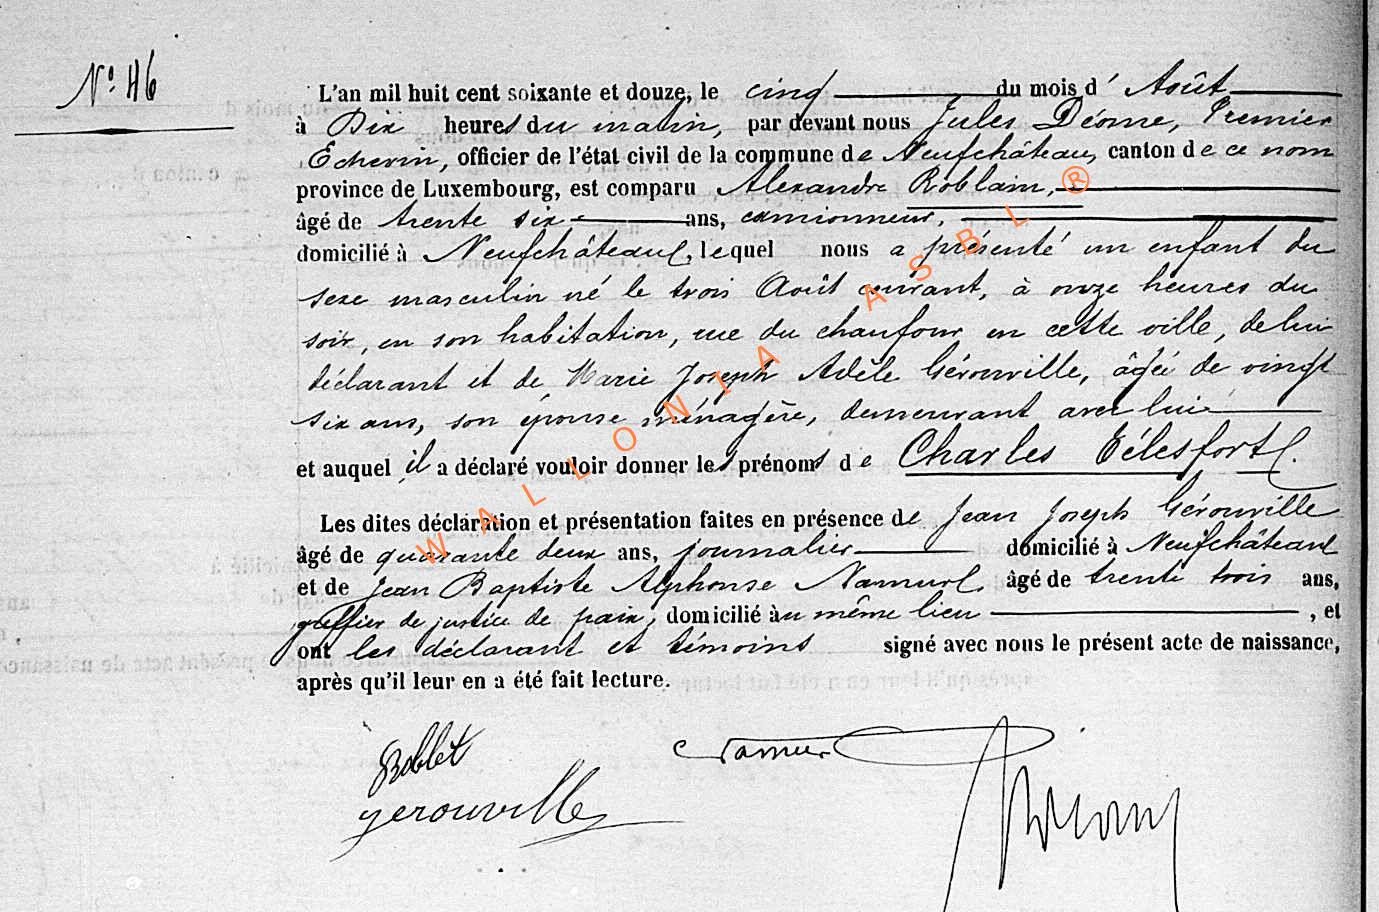 N° 46
L'an mil huit cent soixante et douze, le cinq du mois d' Août
à Dix heures du matin, par devant nous Jules Déome, Premier
Echevin, officier de l'état civil de la commune de Neufchâteau, canton de ce nom
province de Luxembourg, est comparu Alexandre Roblain,
âgé de trente six ans, camionneur,
domicilié à Neufchâteau, lequel nous a présenté un enfant du
sexe masculin né le trois Août courant, à onze heures du
soir, en son habitation, rue du chaufour en cette ville, de lui
déclarant et de Marie Joseph Adèle Gérouville, âgée de vingt
six ans, son épouse ménagère, demeurant avec lui
et auquel il a déclaré vouloir donner les prénoms de Charles Télesfort.
Les dites déclaration et présentation faites en présence de Jean Joseph Gérouville
âgé de quarante deux ans, journalier domicilié à Neufchâteau
et de Jean Baptiste Alphonse Namur âgé de trente trois ans,
greffier de justice de paix, domicilié au même lieu , et
ont les déclarant et témoins signé avec nous le présent acte de naissance,
après qu'il leur en a été fait lecture.
Namur
gerouville
WALLONIA ASBL ®